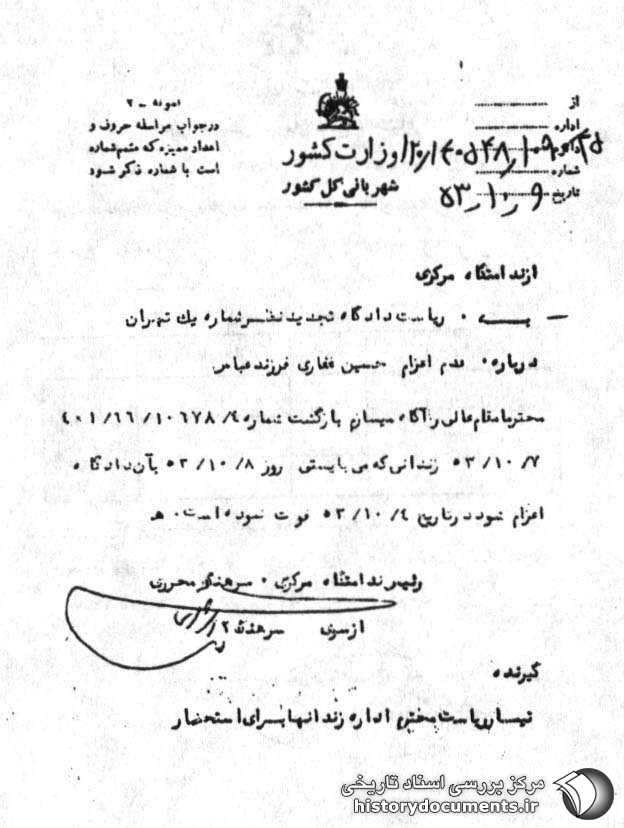 نمونه - ۲
در جواب مراسله حروف و
اعداد ممیزه که متمم شماره
است با شماره ذکر شود
وزارت کشور
شهربانی کل کشور
از
اداره
دایره
شماره
تاریخ ۵۳٫۱۰٫۹
از ندامتگاه مرکزی
به . ریاست دادگاه تجدید نظر شماره یک تهران
درباره . عدم اعزام حسین غفاری فرزند عباس
محترما مقام عالی را آگاه میسازم بازگشت شماره ۴/ ۱۰۶۷۸ /۴۰۱/۶۶
۵۳/۱۰/۷ زندانی که می بایستی روز ۵۳/۱۰/۸ بآن دادگاه
اعزام شود در تاریخ ۵۳/۱۰/۴ فوت نموده است . هـ
رئیس ندامتگاه مرکزی . سرهنگ محرری
از سوی سرهنگ ۲
گیرنده
تیمسار ریاست محترم اداره زندانها برای استحضار
مرکز بررسی اسناد تاریخی
historydocuments.ir